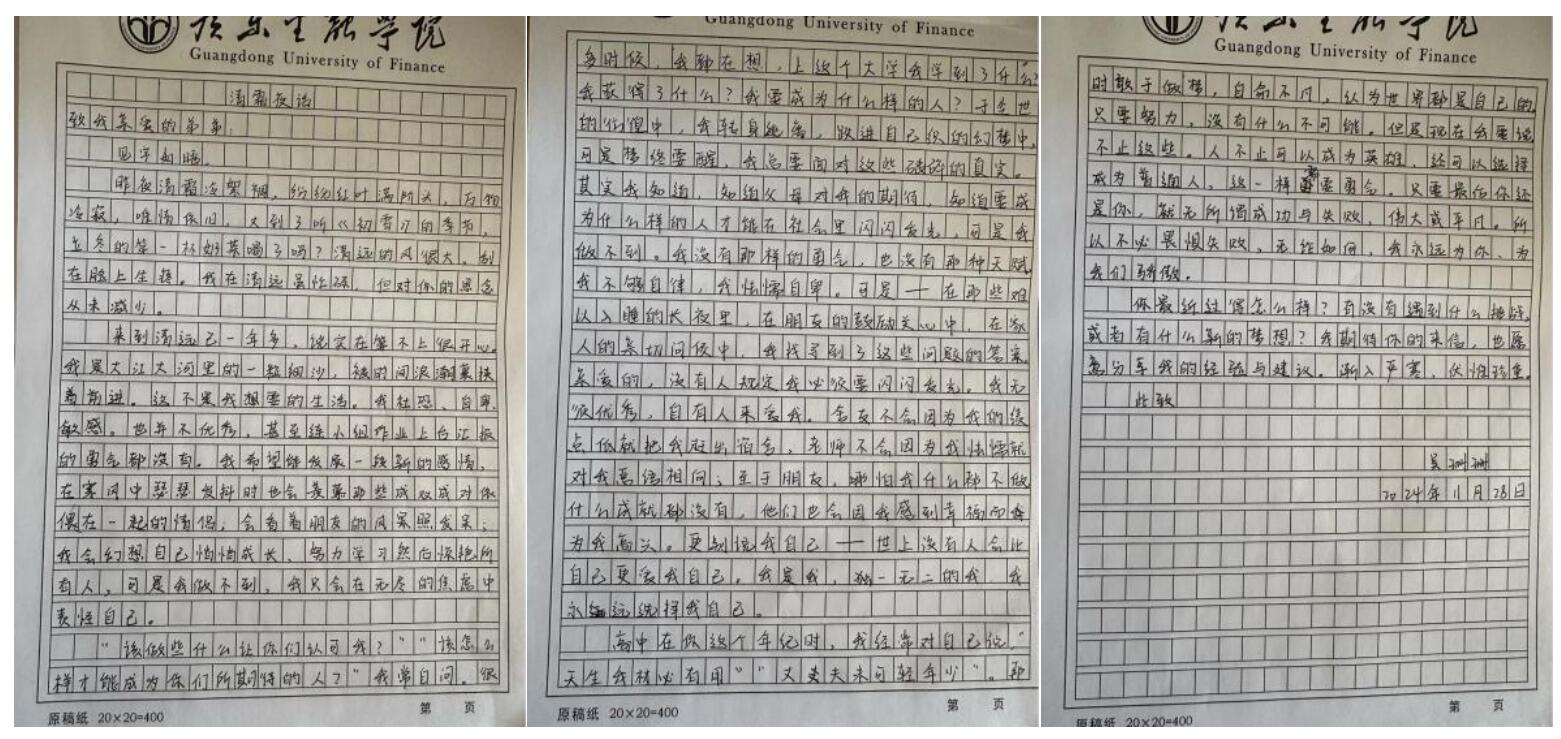 Guangdong University of Finance
清霜夜话
致我亲爱的弟弟:
见字如晤。
昨夜清霜冷絮裯,纷纷红叶满阶头,万物
冷寂,唯情依旧,又到了听《初雪》的季节,
立冬的第一杯奶茶喝了吗?清远的风很大,刮
在脸上生疼。我在清远虽忙碌,但对你的思念
从未减少。
来到清远已一年多,说实在算不上很开心。
我是大江大河里的一粒细沙,被时间浪潮裹挟
着前进。这不是我想要的生活。我社恐、自卑、
敏感。也并不优秀,甚至连小组作业上台汇报
的勇气都没有。我希望能发展一段新的感情,
在寒风中瑟瑟发抖时也会羡慕那些成双成对依
偎在一起的情侣;会看着朋友的风景照发呆;
我会幻想自己悄悄成长、努力学习然后惊艳所
有人,可是我做不到,我只会在无尽的焦虑中
责怪自己。
“该做些什么让你们认可我?”“该怎么
样才能成为你们所期待的人?”我常自问。很
原稿纸 20×20=400
第 页
Guangdong University of Finance
多时候,我都在想,上这个大学我学到了什么?
我获得了什么?我要成为什么样的人?于尘世
的彷徨中,我转身逃离,躲进自己织的幻梦中,
可是梦终要醒,我总要面对这些破碎的真实。
其实我知道,知道父母对我的期待,知道要成
为什么样的人才能在社会里闪闪发光,可是我
做不到。我没有那样的勇气,也没有那种天赋,
我不够自律,我怯懦自卑。可是——在那些难
以入睡的长夜里,在朋友的鼓励关心中,在家
人的亲切问候中,我找寻到了这些问题的答案。
亲爱的,没有人规定我必须要闪闪发光。我无
须优秀,自有人来爱我。舍友不会因为我的绩
点低就把我赶出宿舍,老师不会因为我怯懦就
对我恶语相向;至于朋友,哪怕我什么都不做
什么成就都没有,他们也会因我感到幸福而
为我高兴。更别说我自己——世上没有人会比
自己更爱我自己。我是我,独一无二的我,我
永远选择我自己。
高中在你这个年纪时,我经常对自己说,“
天生我材必有用”“丈夫未可轻年少”。那
原稿纸 20×20=400
第 页
Guangdong University of Finance
时敢于做梦,自命不凡,认为世界都是自己的,
只要努力,没有什么不可能。但是现在我要说
不止这些。人不止可以成为英雄,还可以选择
成为普通人,这一样需要勇气。只要最后你还
是你,就无所谓成功与失败,伟大或平凡。所
以不必畏惧失败,无论如何,我永远为你、为
我们骄傲。
你最近过得怎么样?有没有遇到什么挑战,
或者有什么新的梦想?我期待你的来信,也愿
意分享我的经验与建议。渐入严寒,伏惟珍重。
此致
吴珊珊
2024年11月28日
原稿纸 20×20=400
第 页